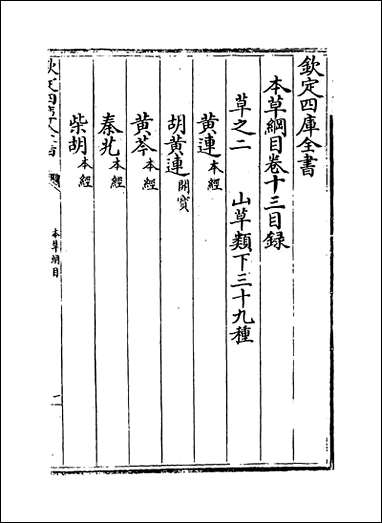 欽定四庫全書
本草綱目卷十三目録
草之二　山草類下三十九種
黄連本經
胡黄連開寶
黄芩本經
秦艽本經
柴胡本經
本草綱目
一